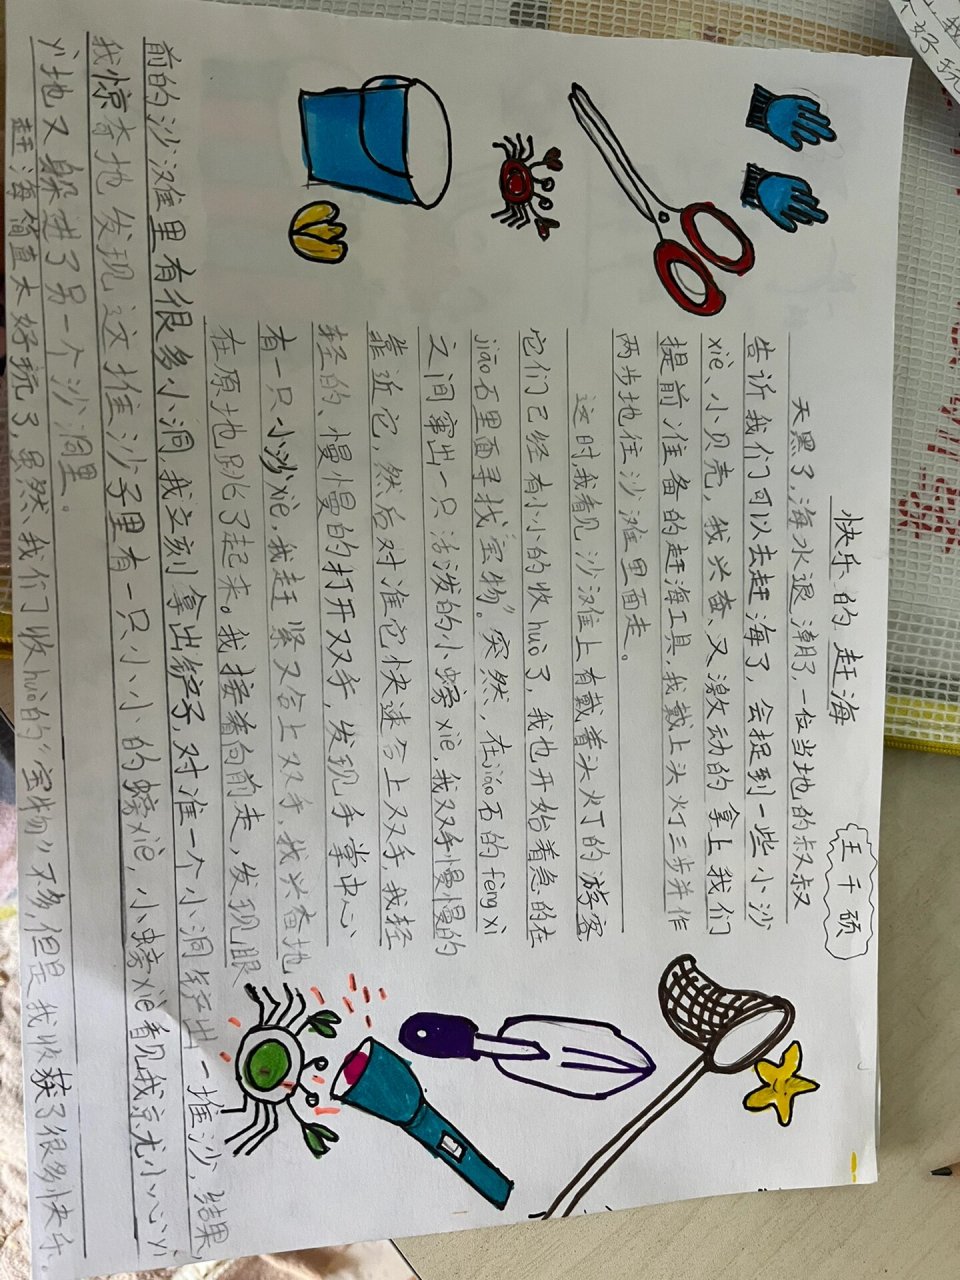 快乐的赶海
王千硕
天黑了,海水退潮了,一位当地的叔叔
告诉我们可以去赶海了,会捉到一些小沙
xiè、小贝壳,我兴奋又激动的拿上我们
提前准备的赶海工具,我戴上头灯三步并作
两步地往沙滩里面走。
这时,我看见沙滩上有戴着头灯的游客,
它们已经有小小的收huò了,我也开始着急的在
jiāo石里面寻找“宝物”。突然,在jiāo石的fèng xì
之间窜出一只活泼的小螃xiè,我双手慢慢的
靠近它,然后对准它快速合上双手,我轻
轻的、慢慢的打开双手,发现手掌中心
有一只小沙xiè,我赶紧又合上双手,我兴奋地
在原地跳了起来。我接着向前走,发现眼
前的沙滩里有很多小洞,我立刻拿出铲子,对准一个小洞铲出一堆沙,结果,
我惊奇地发现这堆沙子里有一只小小的螃xiè,小螃xiè看见我京尤小心yì
yì地又躲进了另一个沙洞里。
赶海简直太好玩了,虽然我们收huò的“宝物”不多,但是我收获了很多快乐。
好玩